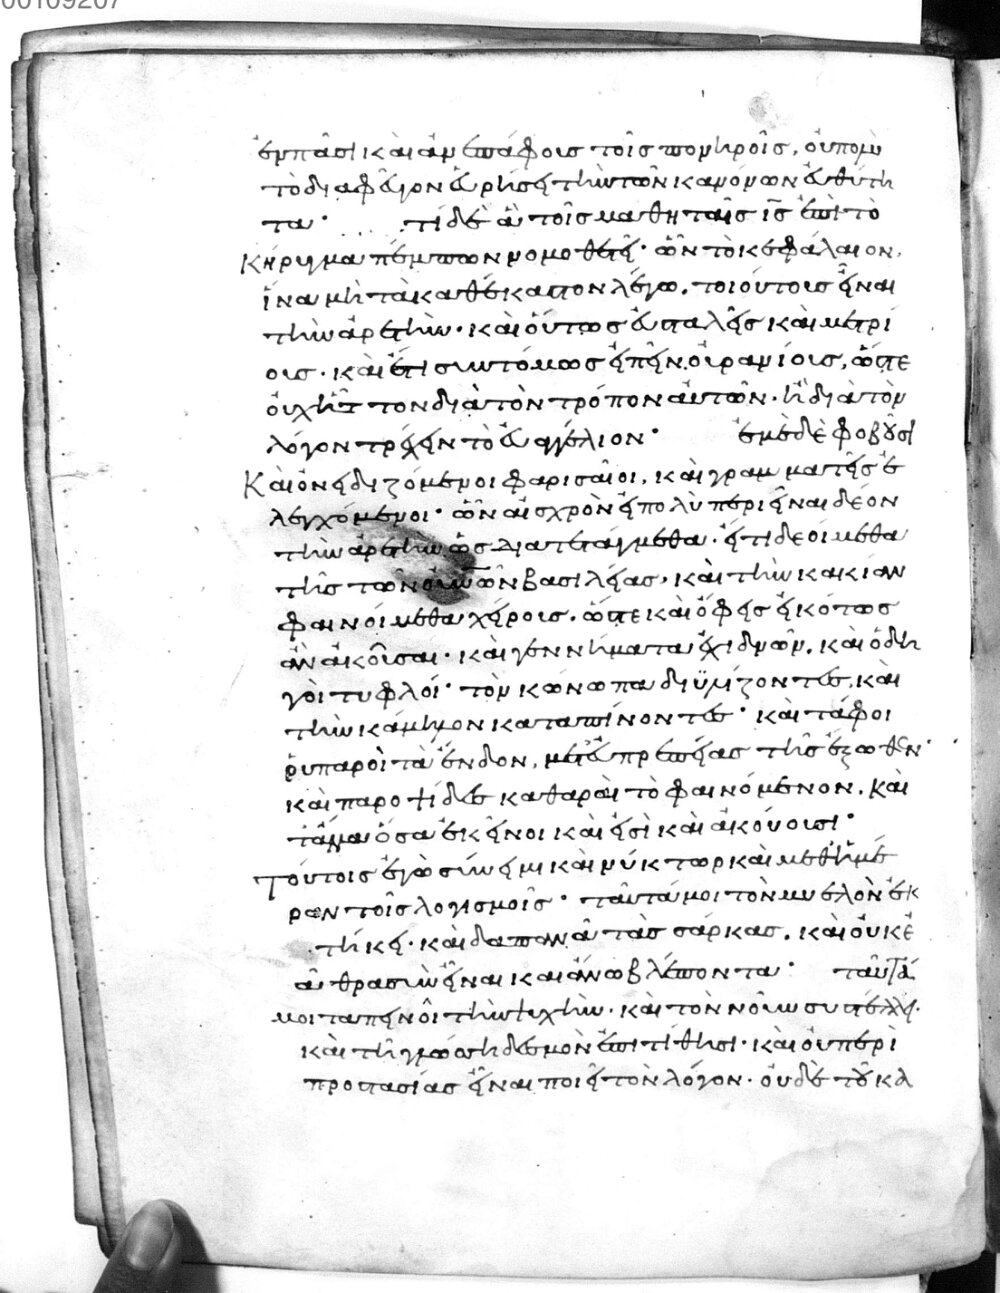 00109207
ἐμπᾶσι καὶ ἀνεπάφοις τοῖς πονηροῖς, οὔπομὲν
τὸ διαφεῦγον εὑρήσει τὴν τῶν κανόνων εὐθύτη
τα· τί δὲ αὐτοῖς μαθηταῖς ι̅ς̅ ἐπὶ τὸ
Κήρυγμα πέμπων νομοθετεῖ· ὧν τὸ κεφάλαιον,
ἵνα μὴ τὰ καθέκαστον λέγω. τοιούτους εἶναι
τὴν ἀρετήν· καὶ οὕτως εὐσταλεῖς καὶ μετρί
ους· καὶ ἔτι συντόμως εἰπεῖν οὐρανίους, ὥστε
οὐχ ἧττον διὰ τὸν τρόπον αὐτῶν· ἢ διὰ τὸν
λόγον τρέχειν τὸ εὐαγγέλιον· ἐμὲ δὲ φοβοῦσι
Καὶ ὀνειδιζόμενοι φαρισαῖοι, καὶ γραμματεῖς ἐ
λεγχόμενοι· ὧν αἰσχρὸν εἰ πολὺ περιεῖναι δέον
τὴν ἀρετὴν ὡς διατετάγμεθα· εἴ τι δεοίμεθα
τῆς τῶν οὐνῶν βασιλείας, καὶ τὴν κακίαν
φαινοίμεθα χείρους. ὥστε καὶ ὄφεις εἰκότως
ἂν ἀκοῦσαι· καὶ γεννήματα ἐχιδνῶν, καὶ ὁδη
γοὶ τυφλοί· τὸν κώνωπα διϋλίζοντες, καὶ
τὴν κάμηλον καταπίνοντες· καὶ τάφοι
ῥυπαροὶ τὰ ἔνδον, μετ' εὐπρεπείας τῆς ἔξωθεν·
καὶ παροψίδες καθαραὶ τὸ φαινόμενον. καὶ
τἄλλα ὅσα ἐκεῖνοι καὶ εἰσὶ καὶ ἀκούουσι·
Τούτοις ἐγὼ σύνειμι καὶ νύκτωρ καὶ μεθημέ
ραν τοῖς λογισμοῖς· ταῦτά μοι τὸν μυελὸν ἐκ
τήκει· καὶ δαπανᾷ τὰς σάρκας. καὶ οὐκ ἐ
ᾷ θρασὺν εἶναι καὶ ἄνω βλέποντα· ταῦτά
μοι ταπεινοῖ τὴν ψυχήν· καὶ τὸν νοῦν συστέλλει·
καὶ τῇ γλώσσῃ δεσμὸν ἐπιτίθησι· καὶ οὐ περὶ
προστασίας εἶναι ποιεῖ τὸν λόγον. οὐδὲ τοῦ κα